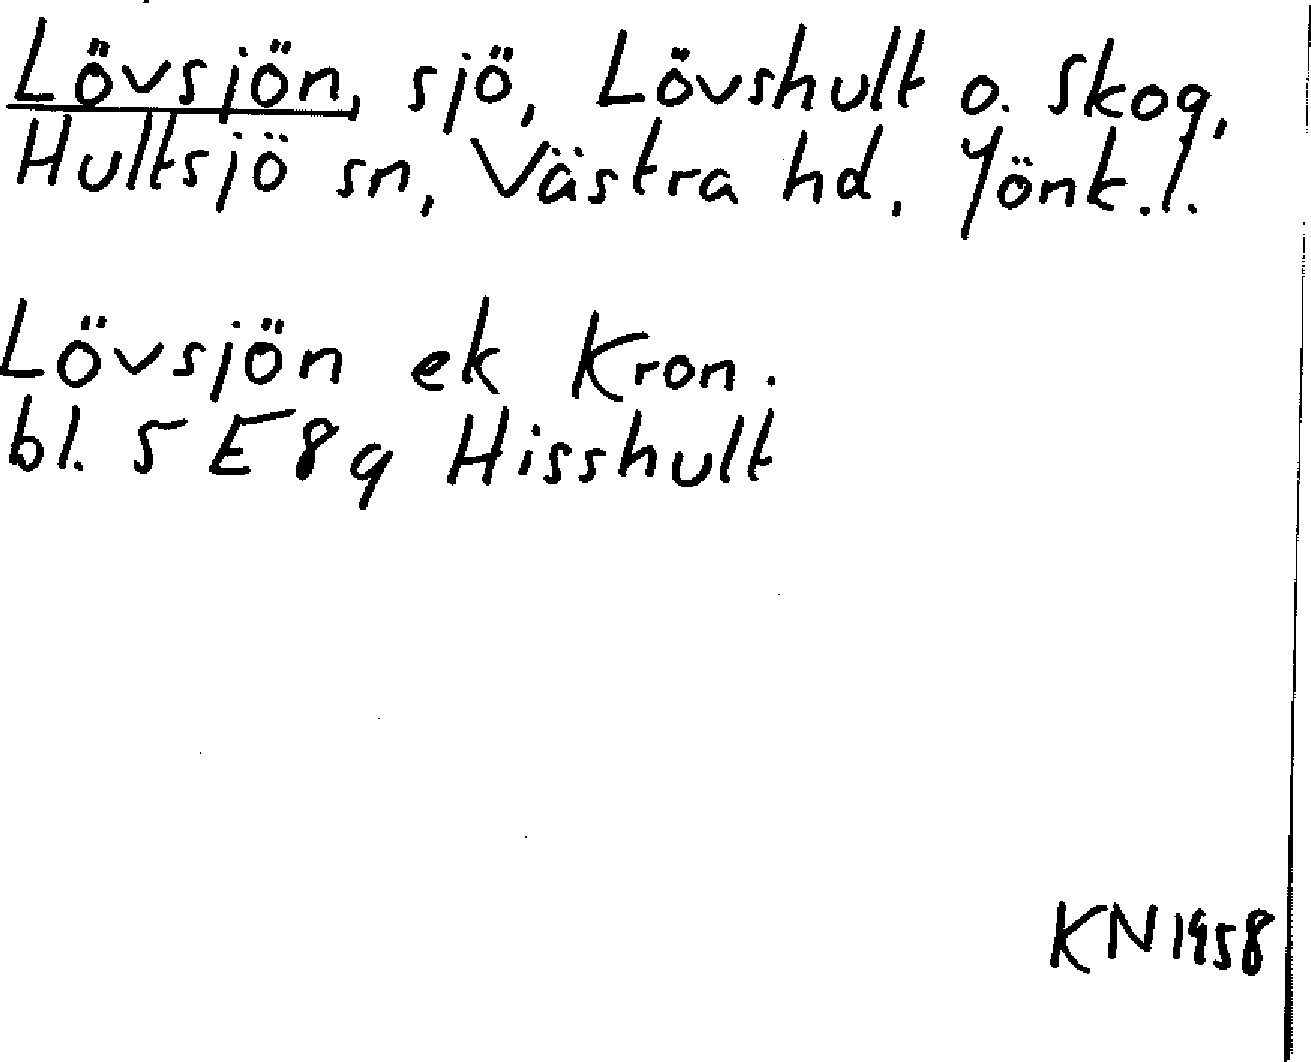 Lövsjön, sjö, Lövshult o. Skog,
Hultsjö sn, Västra hd, Jönk.l.
Lövsjön ek Kron.
bl. 5 E 8 g Hisshult
KN 1958